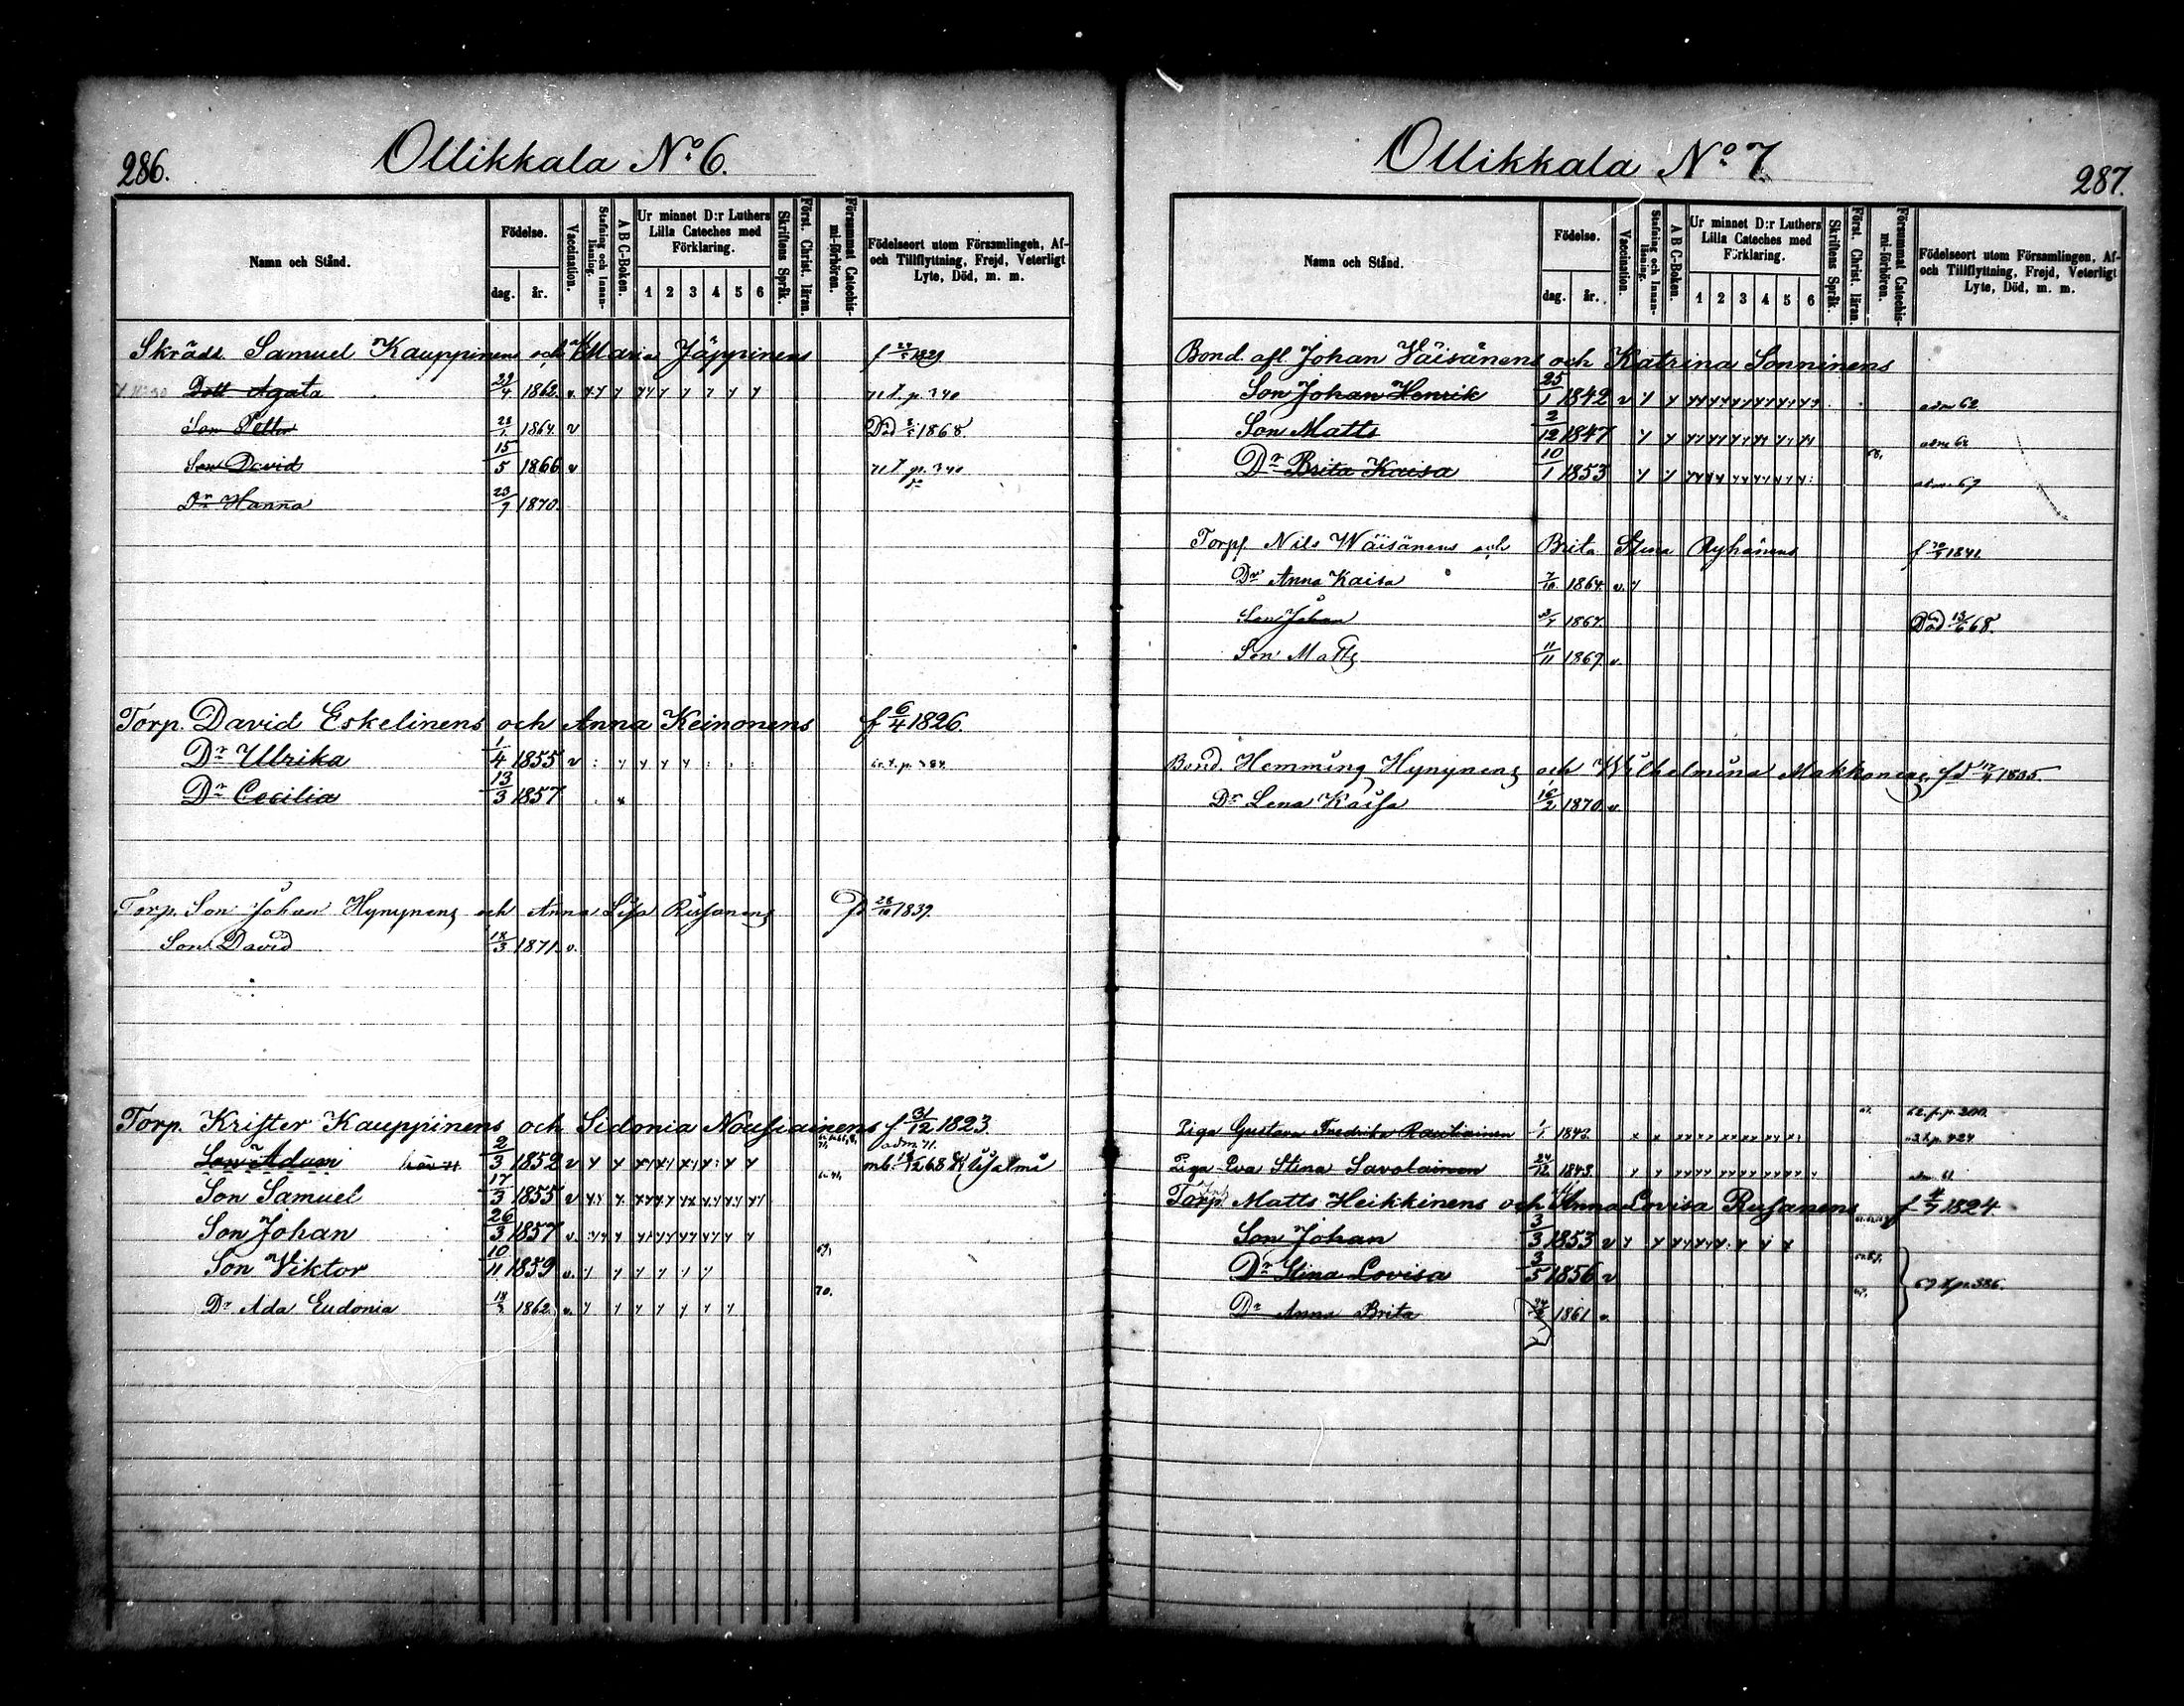 286.
Ollikkala No 6.
Namn och Stånd.
Födelse.
dag. år.
Vaccination.
Stafning och Innanläsning.
A B C-Boken.
Ur minnet D:r Luthers Lilla Cateches med Förklaring.
1 2 3 4 5 6
Skriftens Språk.
Först. Christ. läran.
Försummat Catechismi-förhören.
Födelseort utom Församlingen, Af- och Tillflyttning, Frejd, Veterligt Lyte, Död, m. m.
Skrädd. Samuel Kauppinens och Maria Jäppinens f 1829
Dott Agata 22/4 1862 v
Son Petter 1864 v Död 1868.
Son David 15/5 1866 v
Dr Hanna 1870.
Torp. David Eskelinens och Anna Keinonens f 6/4 1826.
Dr Ulrika 1/4 1855 v
Dr Cecilia 13/3 1857
Torp. Son Johan Hynynens och Anna Lisa Rusanens fd 28/10 1839.
Son David 18/3 1871. v.
Torp. Krister Kauppinens och Sidonia Nousiainens f 31/12 1823.
adm 71.
Son Adam 2/3 1852 v
Son Samuel 17/3 1855 v
Son Johan 26/3 1857 v.
Son Viktor 10/11 1859 v. 69,
Dr Ada Eudonia 1862 v. 70.
Ollikkala No 7.
287.
Namn och Stånd.
Födelse.
dag. år.
Vaccination.
Stafning och Innanläsning.
A B C-Boken.
Ur minnet D:r Luthers Lilla Cateches med Förklaring.
1 2 3 4 5 6
Skriftens Språk.
Först. Christ. läran.
Försummat Catechismi-förhören.
Födelseort utom Församlingen, Af- och Tillflyttning, Frejd, Veterligt Lyte, Död, m. m.
Bond. afl. Johan Väisänens och Katrina Sonninens
Son Johan Henrik 25/1 1842 v adm 62
Son Matts 2/12 1847
Dr Brita Kaisa 10/1 1853 adm 69
Torpf. Nils Wäisänens och Brita Stina Ryhänens f 1841.
Dr Anna Kaisa 7/10 1864. v.
Son Johan 1867. Död 13/6 68.
Son Matts 11/11 1869. v.
Bond. Hemming Hynynens och Wilhelmina Makkonens, fd 1835.
Dr Lena Kaisa 16/2 1870. v.
Piga Gustava Fredrika Rautiainen 1843.
Piga Eva Stina Savolainen 24/12 1843.
Torp. Matts Heikkinens och Anna Lovisa Rusanens f 1824.
Son Johan 3/3 1853 v
Dr Stina Lovisa 3/5 1856 v
Dr Anna Brita 1861 v.